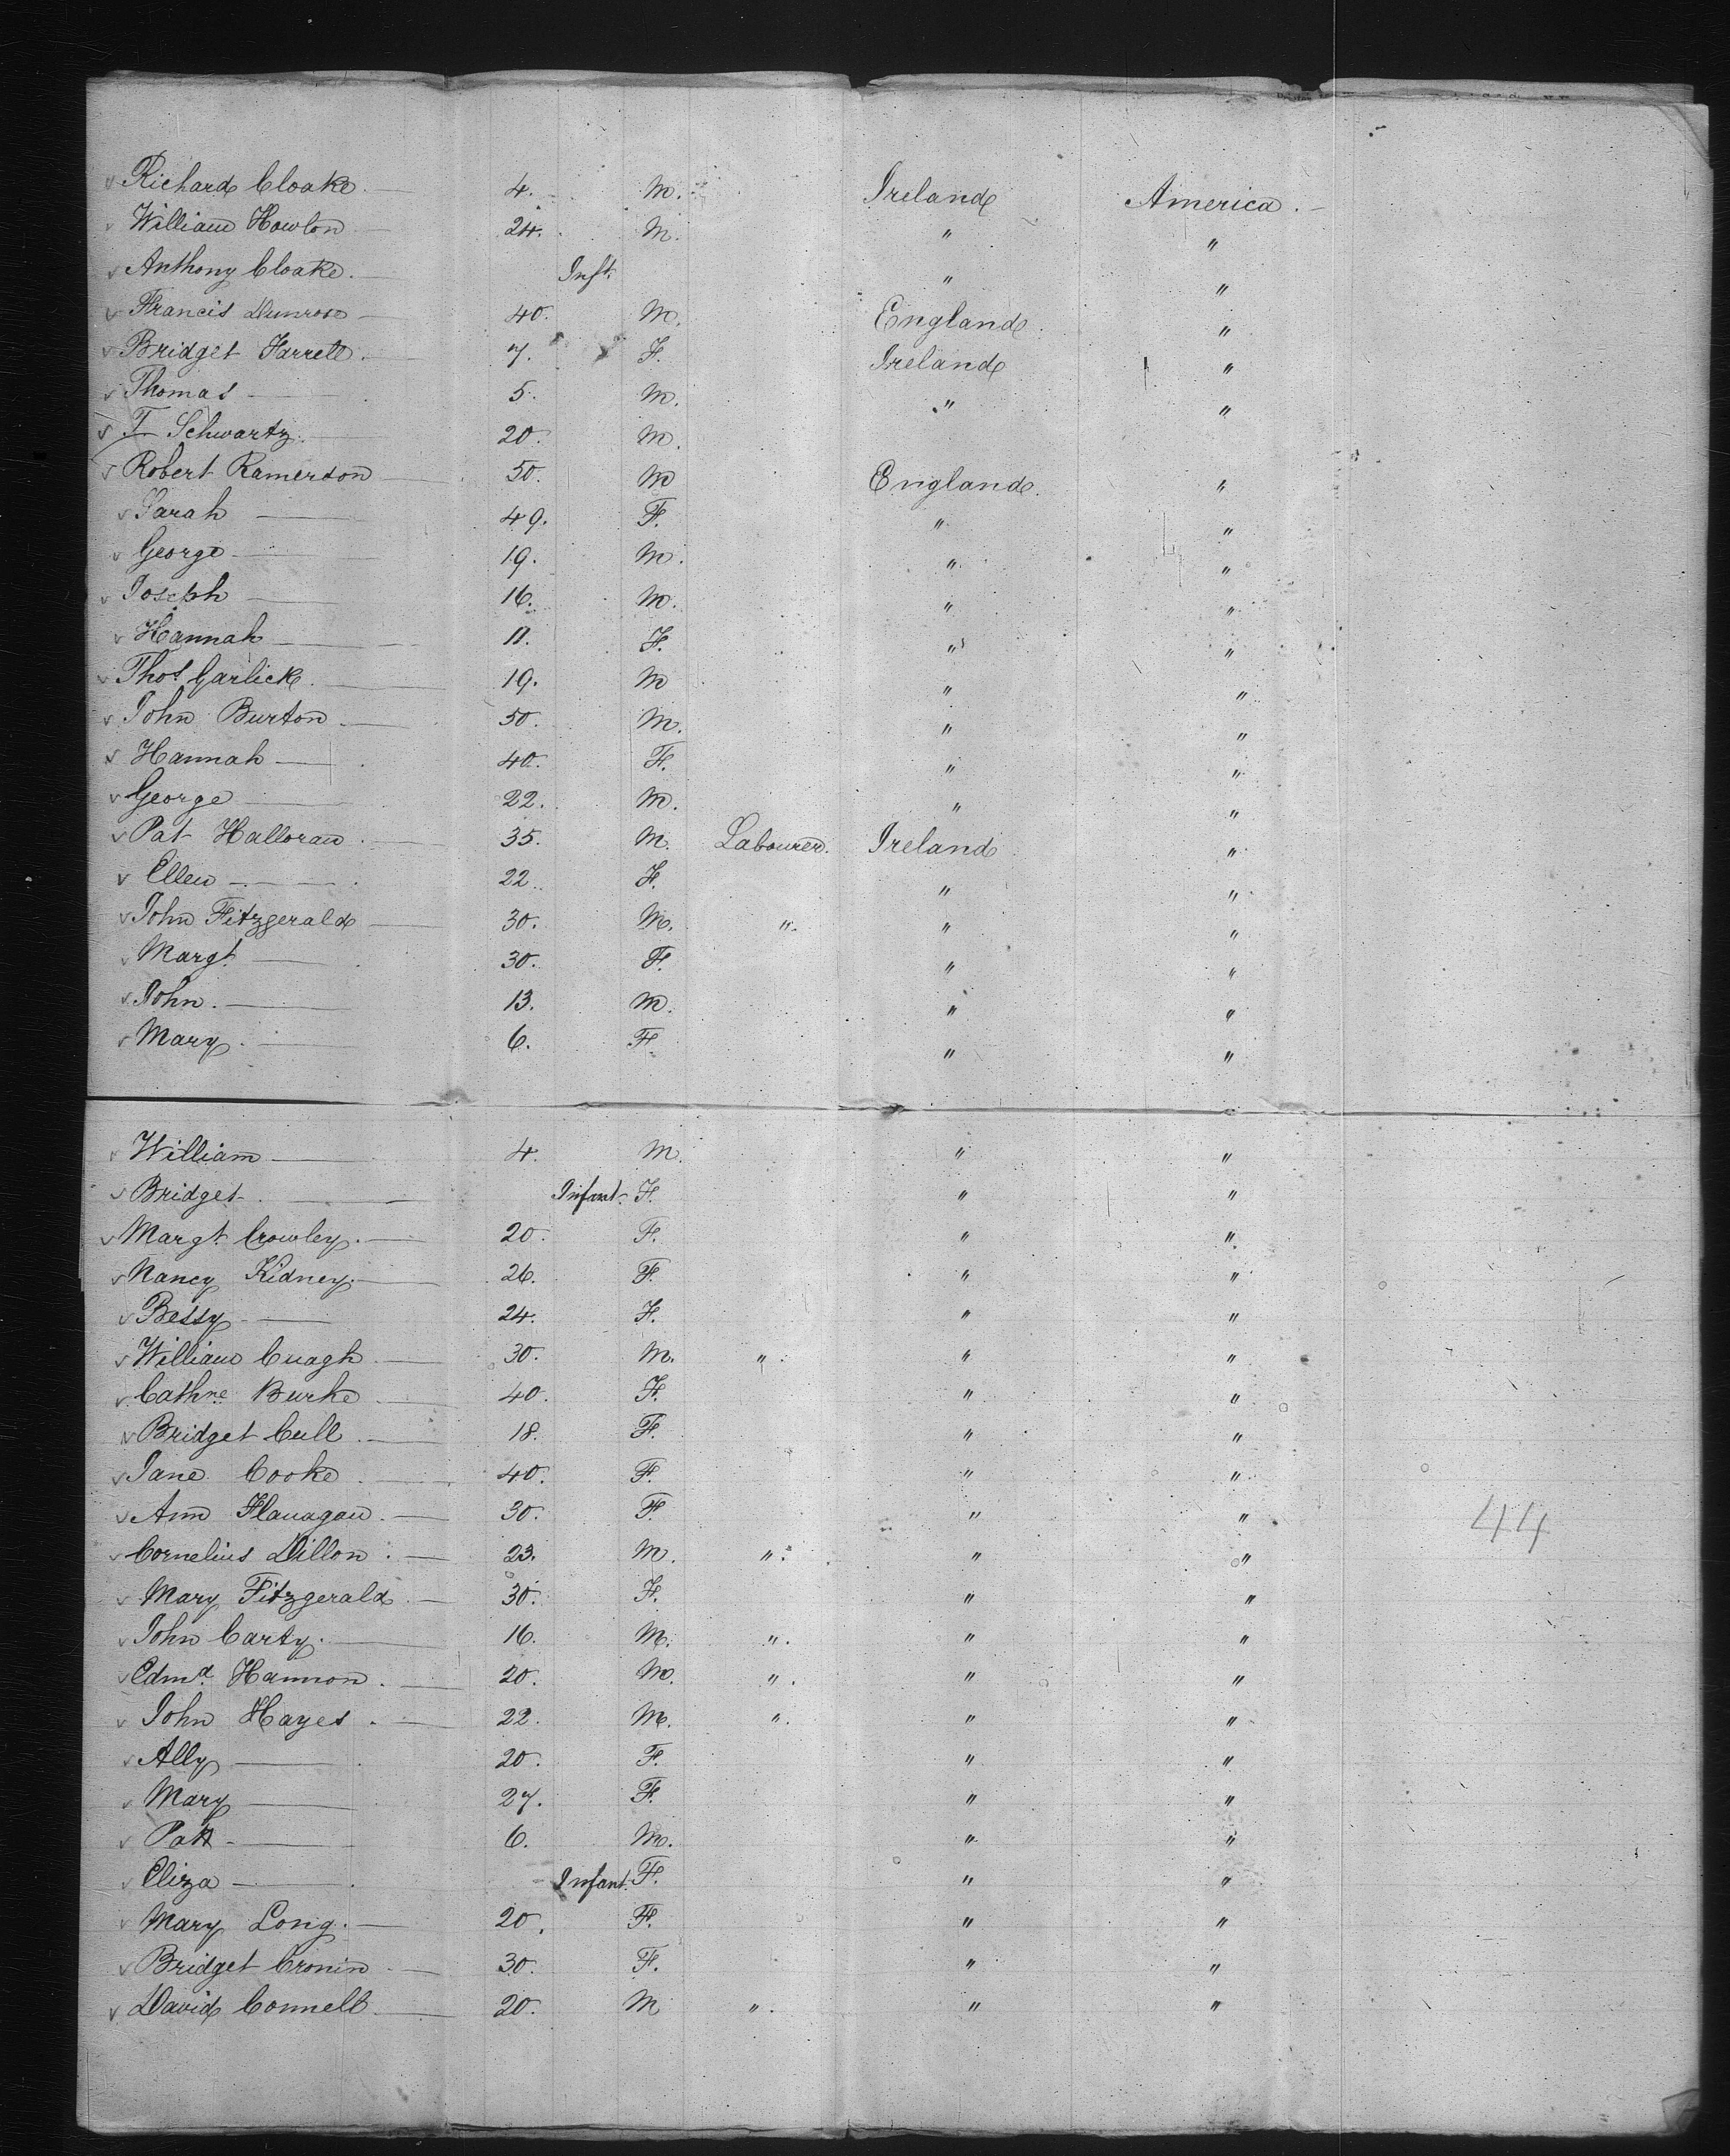 Richard Cloake. 4. M. Ireland America.
William Howlon 24. M. " "
Anthony Cloake. Inft. " "
Francis 40. M. England. "
Bridget Farrell. 7. F. Ireland "
Thomas 5. M. " "
F Schwartz. 20. M.
Robert Ramerson 50. M England. "
Sarah 49. F. " "
George 19. M. " "
Joseph 16. M. " "
Hannah 11. F. " "
Thos Garlick. 19. M " "
John Burton 50. M. " "
Hannah 40. F. " "
George 22. M. " "
Pat Halloran 35. M. Labourer. Ireland "
Ellen 22. F. " "
John Fitzgerald 30. M. " " "
Margt 30. F. " "
John. 13. M. " "
Mary. 6. F. " "
William 4. M. " "
Bridget. Infant. F. " "
Margt Crowley. 20. F. " "
Nancy Kidney. 26. F. " "
Bessy 24. F. " "
William 30. M. " " "
Cathne Burke 40. F. " "
Bridget Cull 18. F. " "
Jane Cooke 40. F. " "
Ann Flanagan. 30. F. " "
Cornelius Dillon. 23. M. " " "
Mary Fitzgerald. 30. F. " "
John Carty. 16. M. " " "
Edmd Hannon. 20. M. " " "
John Hayes. 22. M. " " "
Ally 20. F. " "
Mary 27. F. " "
Pat 6. M. " "
Eliza Infant. F. " "
Mary Long. 20. F. " "
Bridget Cronin 30. F. " "
David Connell 20. M " " "
44